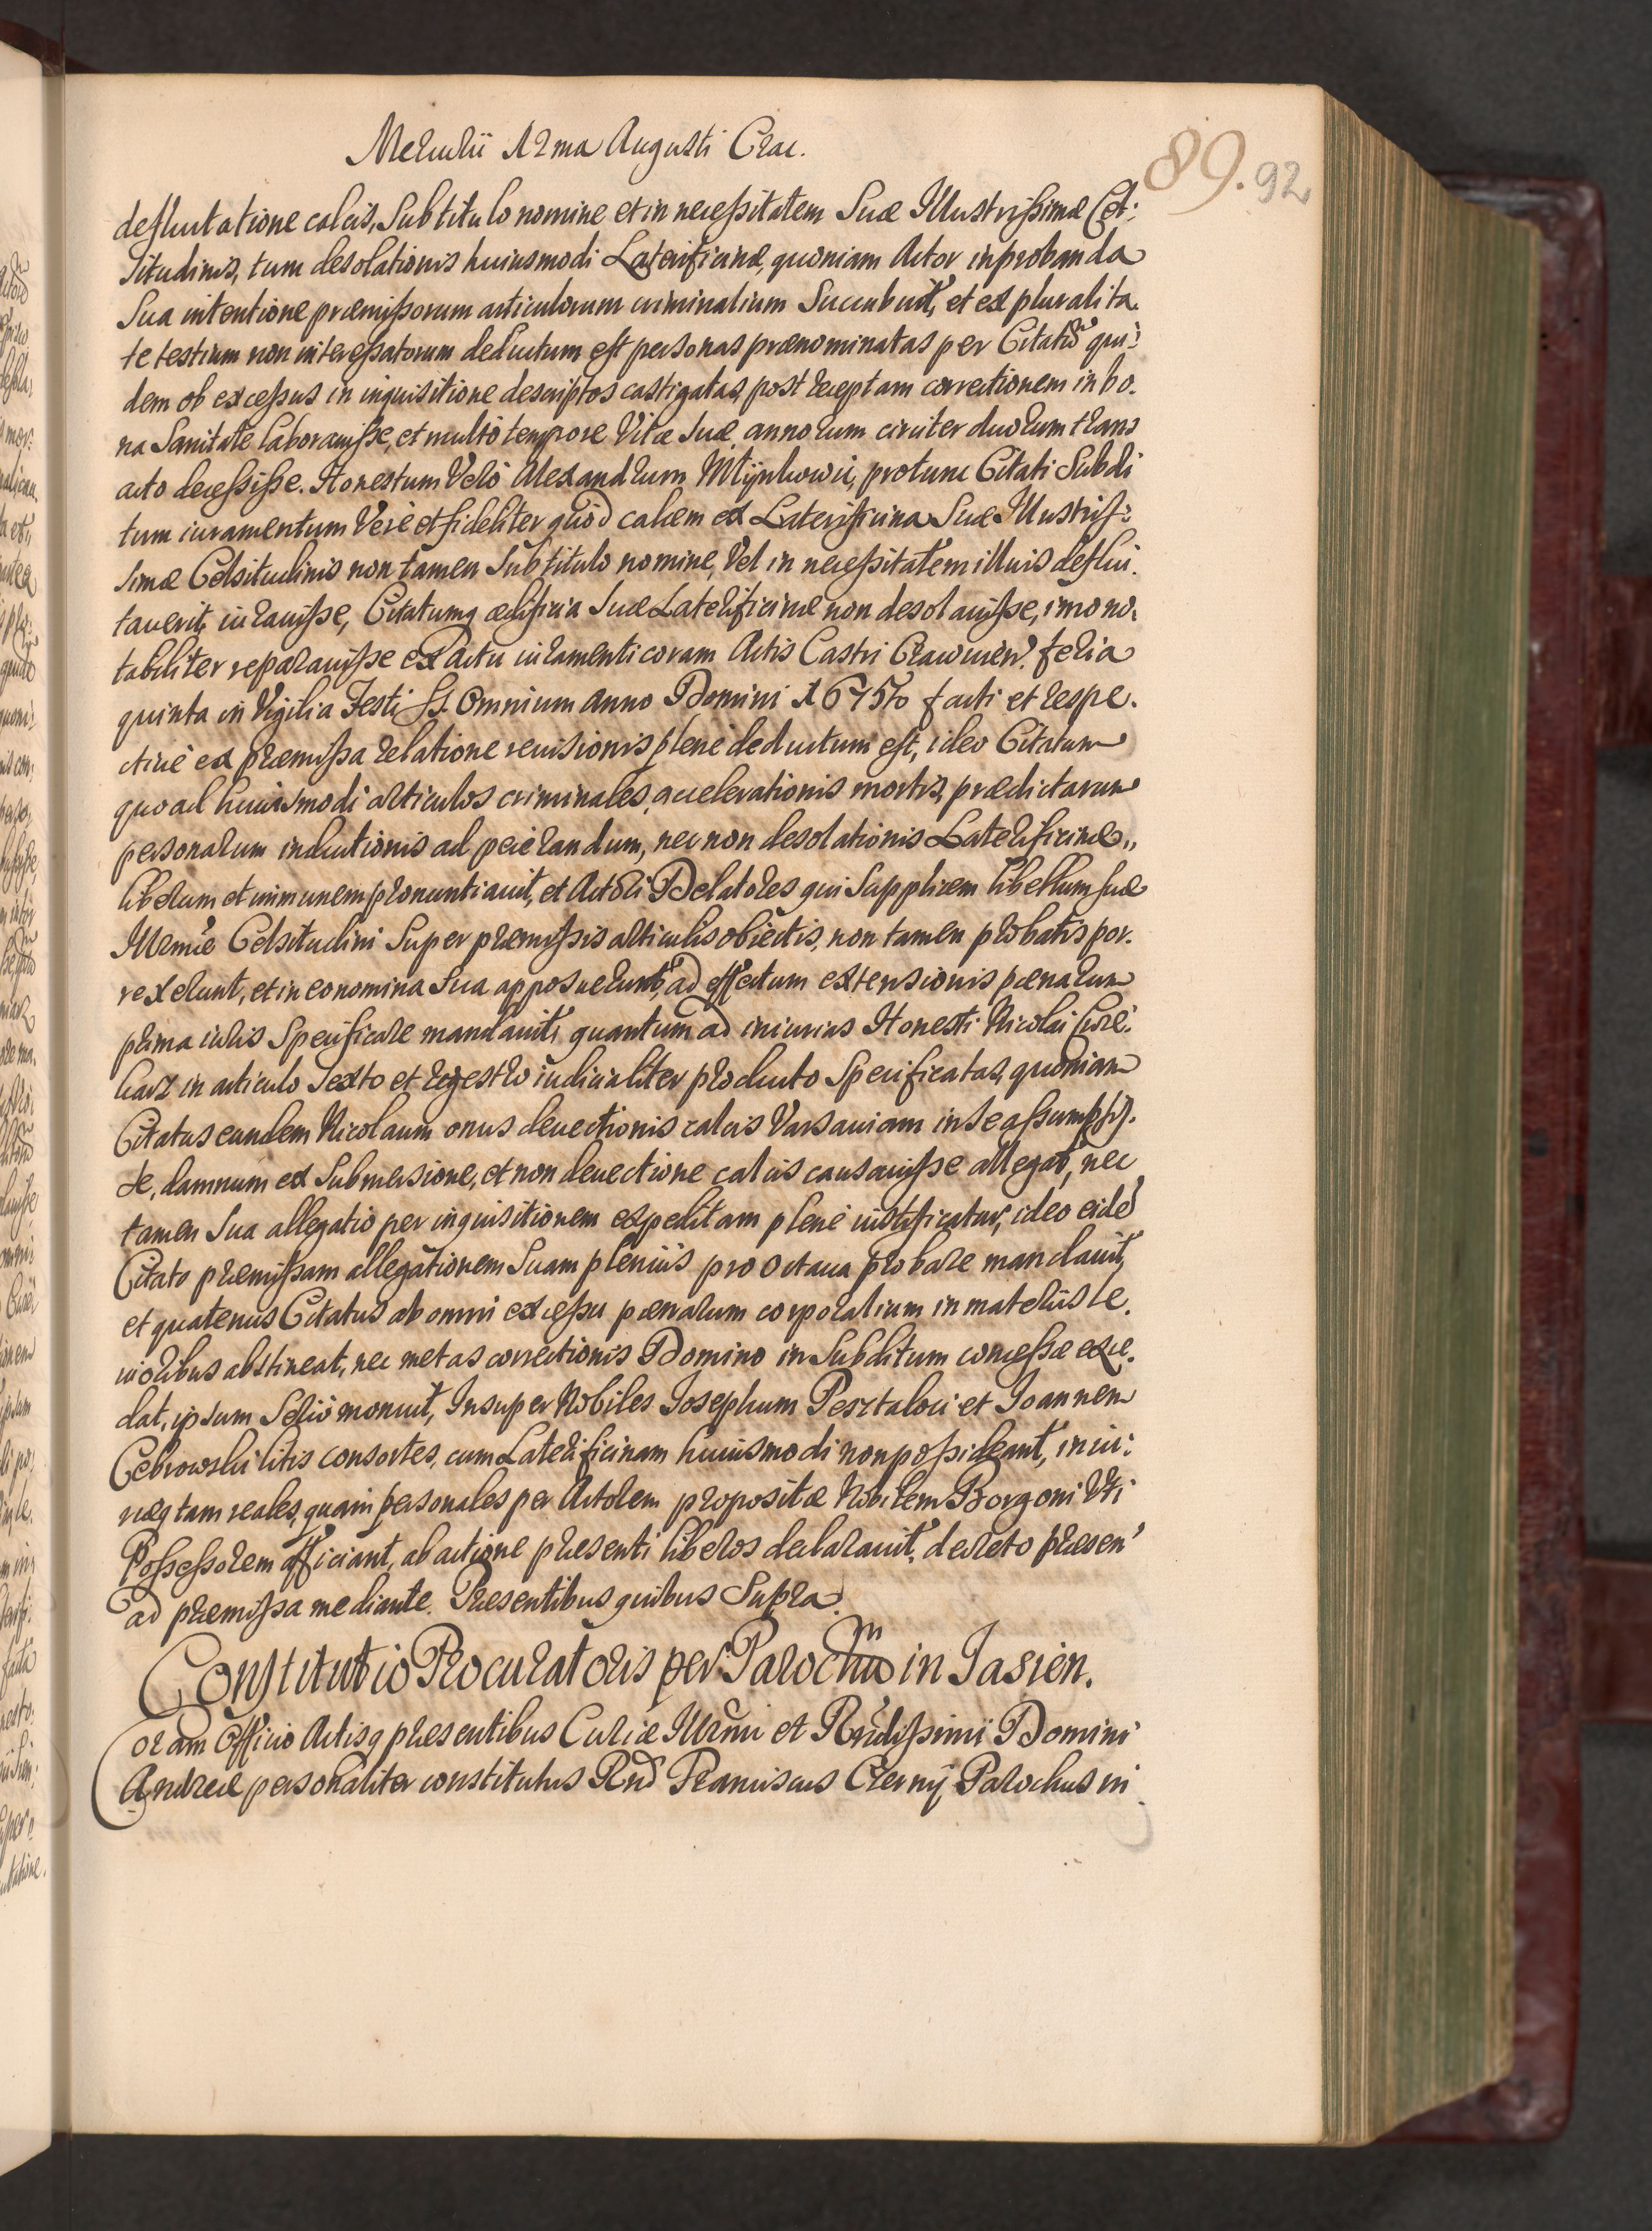 Mercurii 12ma Augusti Crac.
89. 92
defluitatione calcis, Sub titulo nomine et in necessitatem Suæ Illustrissimæ Cel:
situdinis, tum desolationis huiusmodi Laterificinæ, quoniam Actor in probanda
Sua intentione præmissorum articulorum criminalium Succubuit, et ex pluralita.
te testium non interessatorum deductum est personas prænominatas per Citatũ qui:
dem ob excessus in inquisitione descriptos castigatas, post receptam correctionem in bo.
na Sanitate laborauisse, et multo tempore Vitæ Suæ annorum circiter duorum trans
acto decessisse. Honestum Vero Alexandrum protunc Citati Subdi
tum iuramentum Vere et fideliter quod calcem ex Laterificina Suæ Illustris:
simæ Celsitudinis non tamen Sub titulo nomine, Vel in necessitatem illius deflui.
tauerit, iurauisse, Citatumq ædificia Suæ Laterificinæ non desolauisse, imo no.
tabiliter reparauisse ex Actu iuramenti coram Actis Castri feria
quinta in Vigilia Festi SS. Omnium Anno Domini 1675to facti et respe.
ctiue ex præmissa relatione reuisionis plene deductum est, ideo Citatum
quo ad huiusmodi articulos criminales, accelerationis mortis, prædictarum
personarum inductionis ad peierandum, nec non desolationis Laterificinæ,,
liberum et immunem pronuntiauit, et Actori Delatores qui Supplicem libellum Suæ
Illmæ Celsitudini Super præmissis articulis obiectis, non tamen probatis por.
rexerunt, et in eo nomina Sua apposuerunt, ad effectum extensionis pænarum
prima iuris Specificare mandauit, quantum ad iniurias Honesti Nicolai Cure:
harz in articulo Sexto et regestro iudicialiter producto Specificatas, quoniam
Citatus eundem Nicolaum onus deuectionis calcis Varsauiam in se assumpsis.
se, damnum ex Submersione, et non deuectione calcis causauisse allegat, nec
tamen Sua allegatio per inquisitionem expeditam plene iustificatur, ideo eidẽ
Citato præmissam allegationem Suam plenius pro octaua probare mandauit,
et quatenus Citatus ab omni excessu pænarum corporalium in materiis le.
uioribus abstineat, nec metas correctionis Domino in Subditum concessæ exce.
dat, ipsum Serio monuit, Insuper Nobiles Iosephum Pesztaloci et Ioannem
Cebrowski litis consortes, cum Laterificinam huiusmodi non possideant, iniu:
riæq tam reales, quam personales per Actorem propositæ Nobilem Borgoni Vti
Possessorem afficiant, ab actione præsenti liberos declarauit, decreto præsen
ad præmissa mediante. Præsentibus quibus Supra.
Constitutio Procuratoris per Parochũm in Jasien.
Coram Officio Actisq præsentibus Curiæ Illrmi et Rndissimi Domini
Andreæ personaliter constitutus Rnd Franciscus Czerny Parochus in